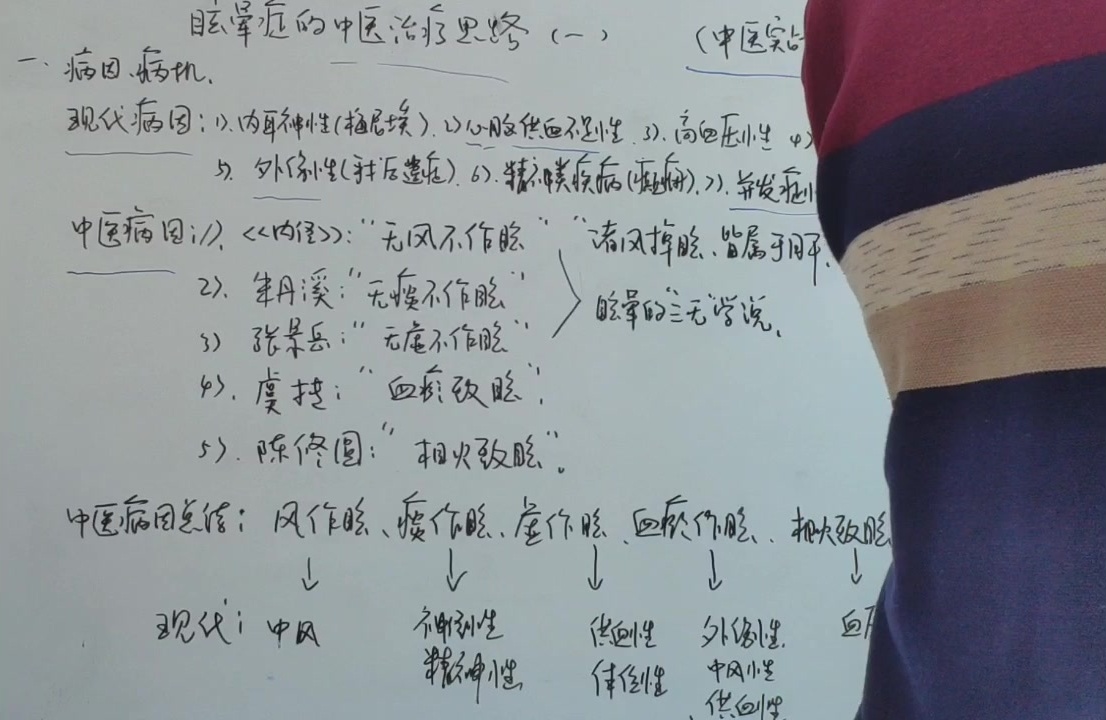 眩晕症的中医治疗思路（一） （中医实
一、病因、病机.
现代病因：1).内耳神性(梅尼埃). 2)心脑供血不足性. 3).高血压性 4)
5).外伤性(针后遗症). 6).精神类疾病(癫痫). 7).并发症
中医病因：1).《内经》：“无风不作眩” “诸风掉眩、皆属于肝.
2).朱丹溪：“无痰不作眩” 眩晕的“三无”学说.
3) 张景岳：“无虚不作眩”
4).虞抟：“血瘀致眩”.
5).陈修园：“相火致眩”。
中医病因总结：风作眩、痰作眩、虚作眩、血瘀作眩、相火致眩
现代：中风 神倒性 供血性 外伤性. 血
精神性. 体位性 中风性
供血性